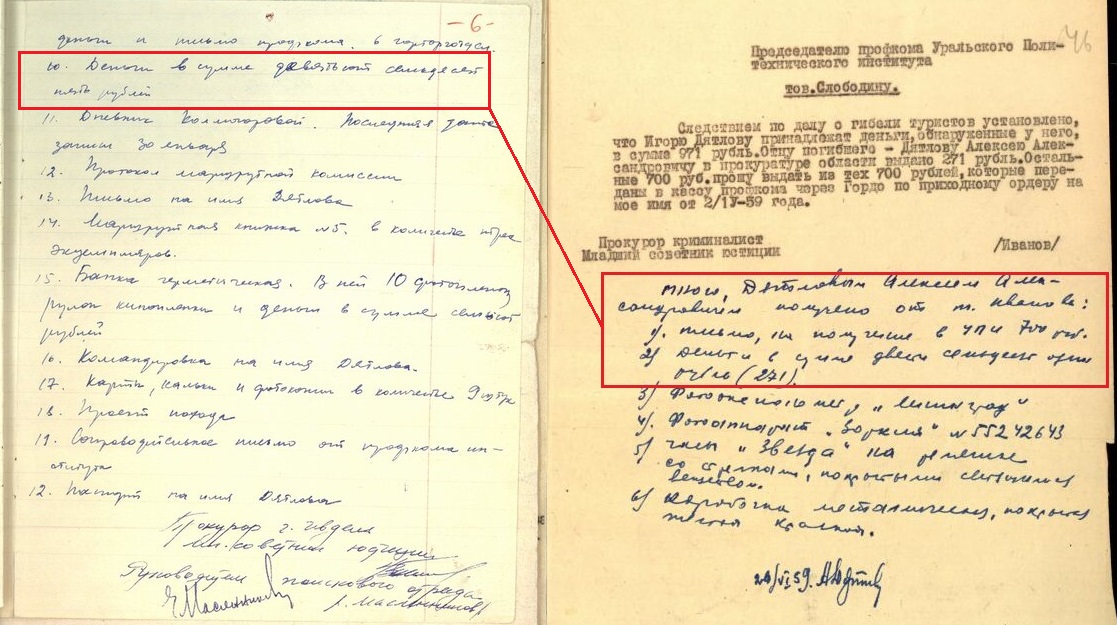 -6-
деньги и письмо профкома. в горторготдел
10. Деньги в сумме девятьсот семьдесят
пять рублей
11. Дневник Колмогоровой. Последняя дата
записи 30 января
12. Протокол маршрутной комиссии
13. Письмо на имя Дятлова
14. Маршрутная книжка №5. в количестве трех
экземпляров.
15. Банка герметическая. В ней 10 фотопленок
рулон кинопленки и деньги в сумме семьсот
рублей
16. Командировка на имя Дятлова.
17. Карты, кальки и фотокопии в количестве 9 штук
18. Проект похода
19. Сопроводительное письмо от профкома ин-
ститута
12. Паспорт на имя Дятлова
Прокурор г. Ивдель
мл. советник юстиции
Руководитель поискового отряда
Е. Масленников
46
Председателю профкома Уральского Поли-
технического института
тов.Слободину.
Следствием по делу о гибели туристов установлено,
что Игорю Дятлову принадлежат деньги,обнаруженные у него,
в сумма 971 рубль.Отцу погибшего - Дятлову Алексею Алек-
сандровичу в прокуратуре области выдано 271 рубль.Осталь-
ные 700 руб.прошу выдать из тех 700 рублей,которые пере-
даны в кассу профкома через Гордо по приходному ордеру на
мое имя от 2/1У-59 года.
Прокурор криминалист
Младший советник юстиции
/Иванов/
Мною, Дятловым Алексеем Алек-
сандровичем получено от т. Иванова:
1). письмо, на получение в УПИ 700 руб.
2) Деньги в сумме двести семьдесят один
рубль (271).
3) Фотоэкспонометр „Ленинград"
4). Фотоаппарат „Зоркий" №55242643
5) часы „Звезда" на ремешке
со стрелками, покрытыми светящимся
веществом.
6) коробочка металическая, покрытая
желтой краской.